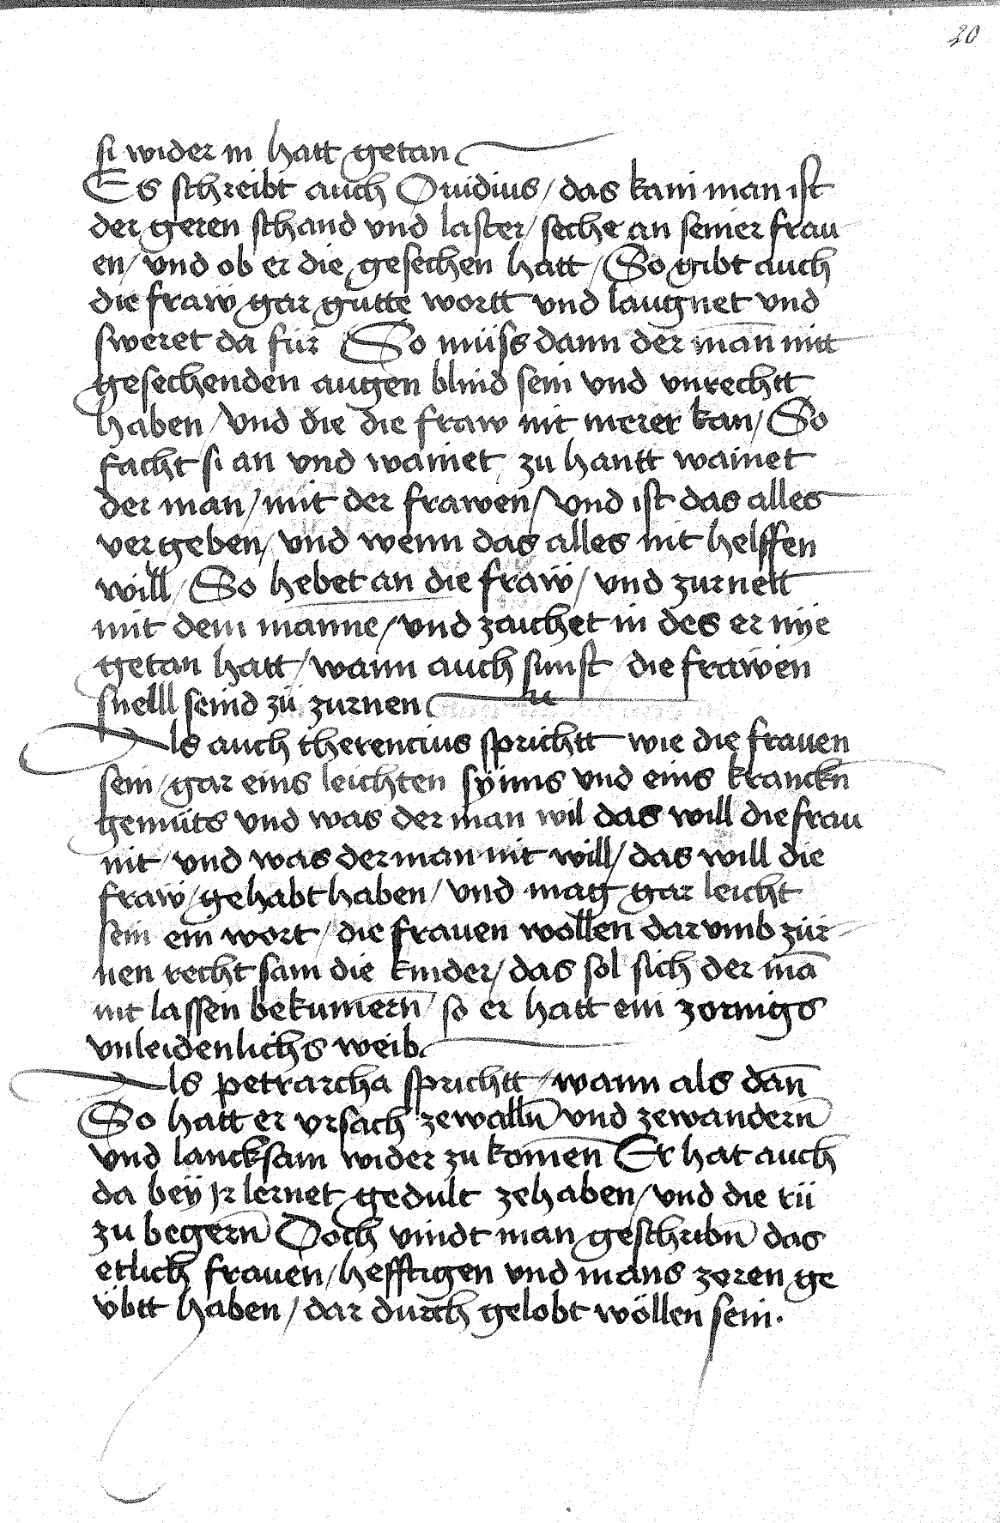 20
si wider in hatt getan
Es schreibt auch Ouidius / das kain man ist
der geren schand vnd laster / seche an seiner frau
en / vnd ob er die gesechen hatt / So gibt auch
die fraẅ gar gutte wortt vnd laugnet vnd
sweret da für So müss dann der man̄ mit
gesechenden augen blind sein vnd vnrechtt
haben / Vnd die die fraw nit merer kan / So
facht si an vnd wainet zu hantt wainet
der man / mit der frawen / Vnd ist das alles
vergeben / vnd wenn das alles nit helffen
will / So hebet an die fraẅ / vnd zurnett
mit dem manne / vnd zaichet in des er nÿe
getan hatt / wann auch sunst die frawen
snelll seind zü zurnen
Als auch therencius sprichtt wie die frauen
sein / gar eins leichten sÿnns vnd eins kranckn̄
gemüts vnd was der man wil das will die frau
nit / vnd was der man nit will / das will die
fraẅ / gehabt haben / vnd mag gar leicht
sein ein wort / die frauen wollen darvmb zür
nen recht sam die kinder / das sol sich der mā
nit lassen bekumern̄ so er hatt ein zornigs
vnleidenlichs weib
Als petrarcha sprichtt / wann als dan̄
So hatt er vrsach zewalln̄ vnd zewandern̄
vnd lancksam wider zu komen̄ Er hat auch
da beÿ Jr lernet gedult zehaben / vnd die rü
zu begern̄ Doch vindt man geschribn̄ das
etlich frauen / hefftigen vnd mans zoren ge
übtt haben / dar durch gelobt wöllen sein.